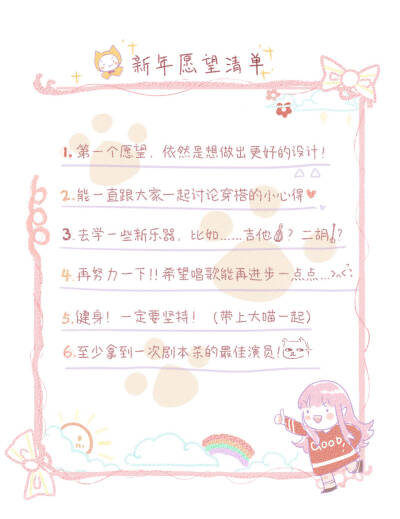 新年愿望清单
1.第一个愿望，依然是想做出更好的设计！
2.能一直跟大家一起讨论穿搭的小心得
3.去学一些新乐器，比如……吉他？二胡？
4.再努力一下!!希望唱歌能再进步一点点...>.<
5.健身！一定要坚持！（带上大喵一起）
6.至少拿到一次剧本杀的最佳演员！
GOOD,